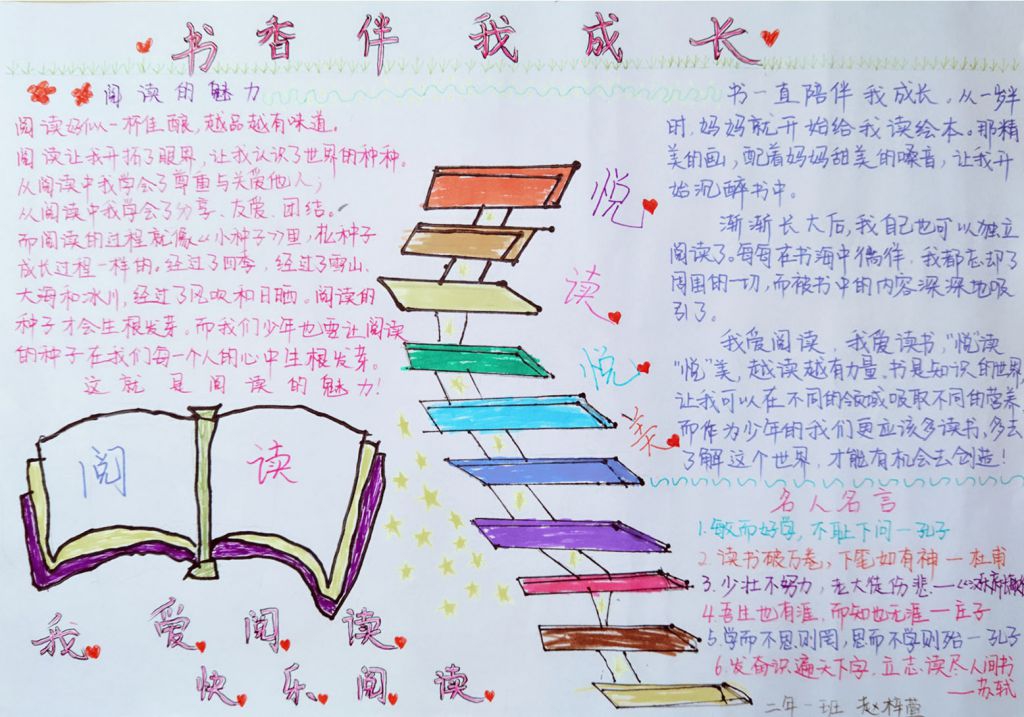 书香伴我成长
阅读的魅力
阅读好似一杯佳酿，越品越有味道。
阅读让我开拓了眼界，让我认识了世界的种种。
从阅读中我学会了尊重与关爱他人；
从阅读中我学会了分享、友爱、团结。
而阅读的过程就像《小种子》里，粒种子
成长过程一样的。经过了四季，经过了雪山、
大海和冰川，经过了风吹和日晒。阅读的
种子才会生根发芽。而我们少年也要让阅读
的种子在我们每一个人的心中生根发芽。
这就是阅读的魅力！
阅读
我爱阅读
快乐阅读
悦
读
悦
美
书一直陪伴我成长。从一岁半
时，妈妈就开始给我读绘本。那精
美的画，配着妈妈甜美的嗓音，让我开
始沉醉书中。
渐渐长大后，我自己也可以独立
阅读了。每每在书海中徜徉，我都忘却了
周围的一切，而被书中的内容深深地吸
引了。
我爱阅读，我爱读书，“悦”读
“悦”美，越读越有力量。书是知识的世界
让我可以在不同的领域吸取不同的营养
而作为少年的我们更应该多读书，多去
了解这个世界，才能有机会去创造！
名人名言
1.敏而好学，不耻下问—孔子
2.读书破万卷，下笔如有神—杜甫
3.少壮不努力，老大徒伤悲—《汉乐府
4.吾生也有涯，而知也无涯—庄子
5.学而不思则罔，思而不学则殆—孔子
6.发奋识遍天下字，立志读尽人间书
—苏轼
二年一班 赵梓萱